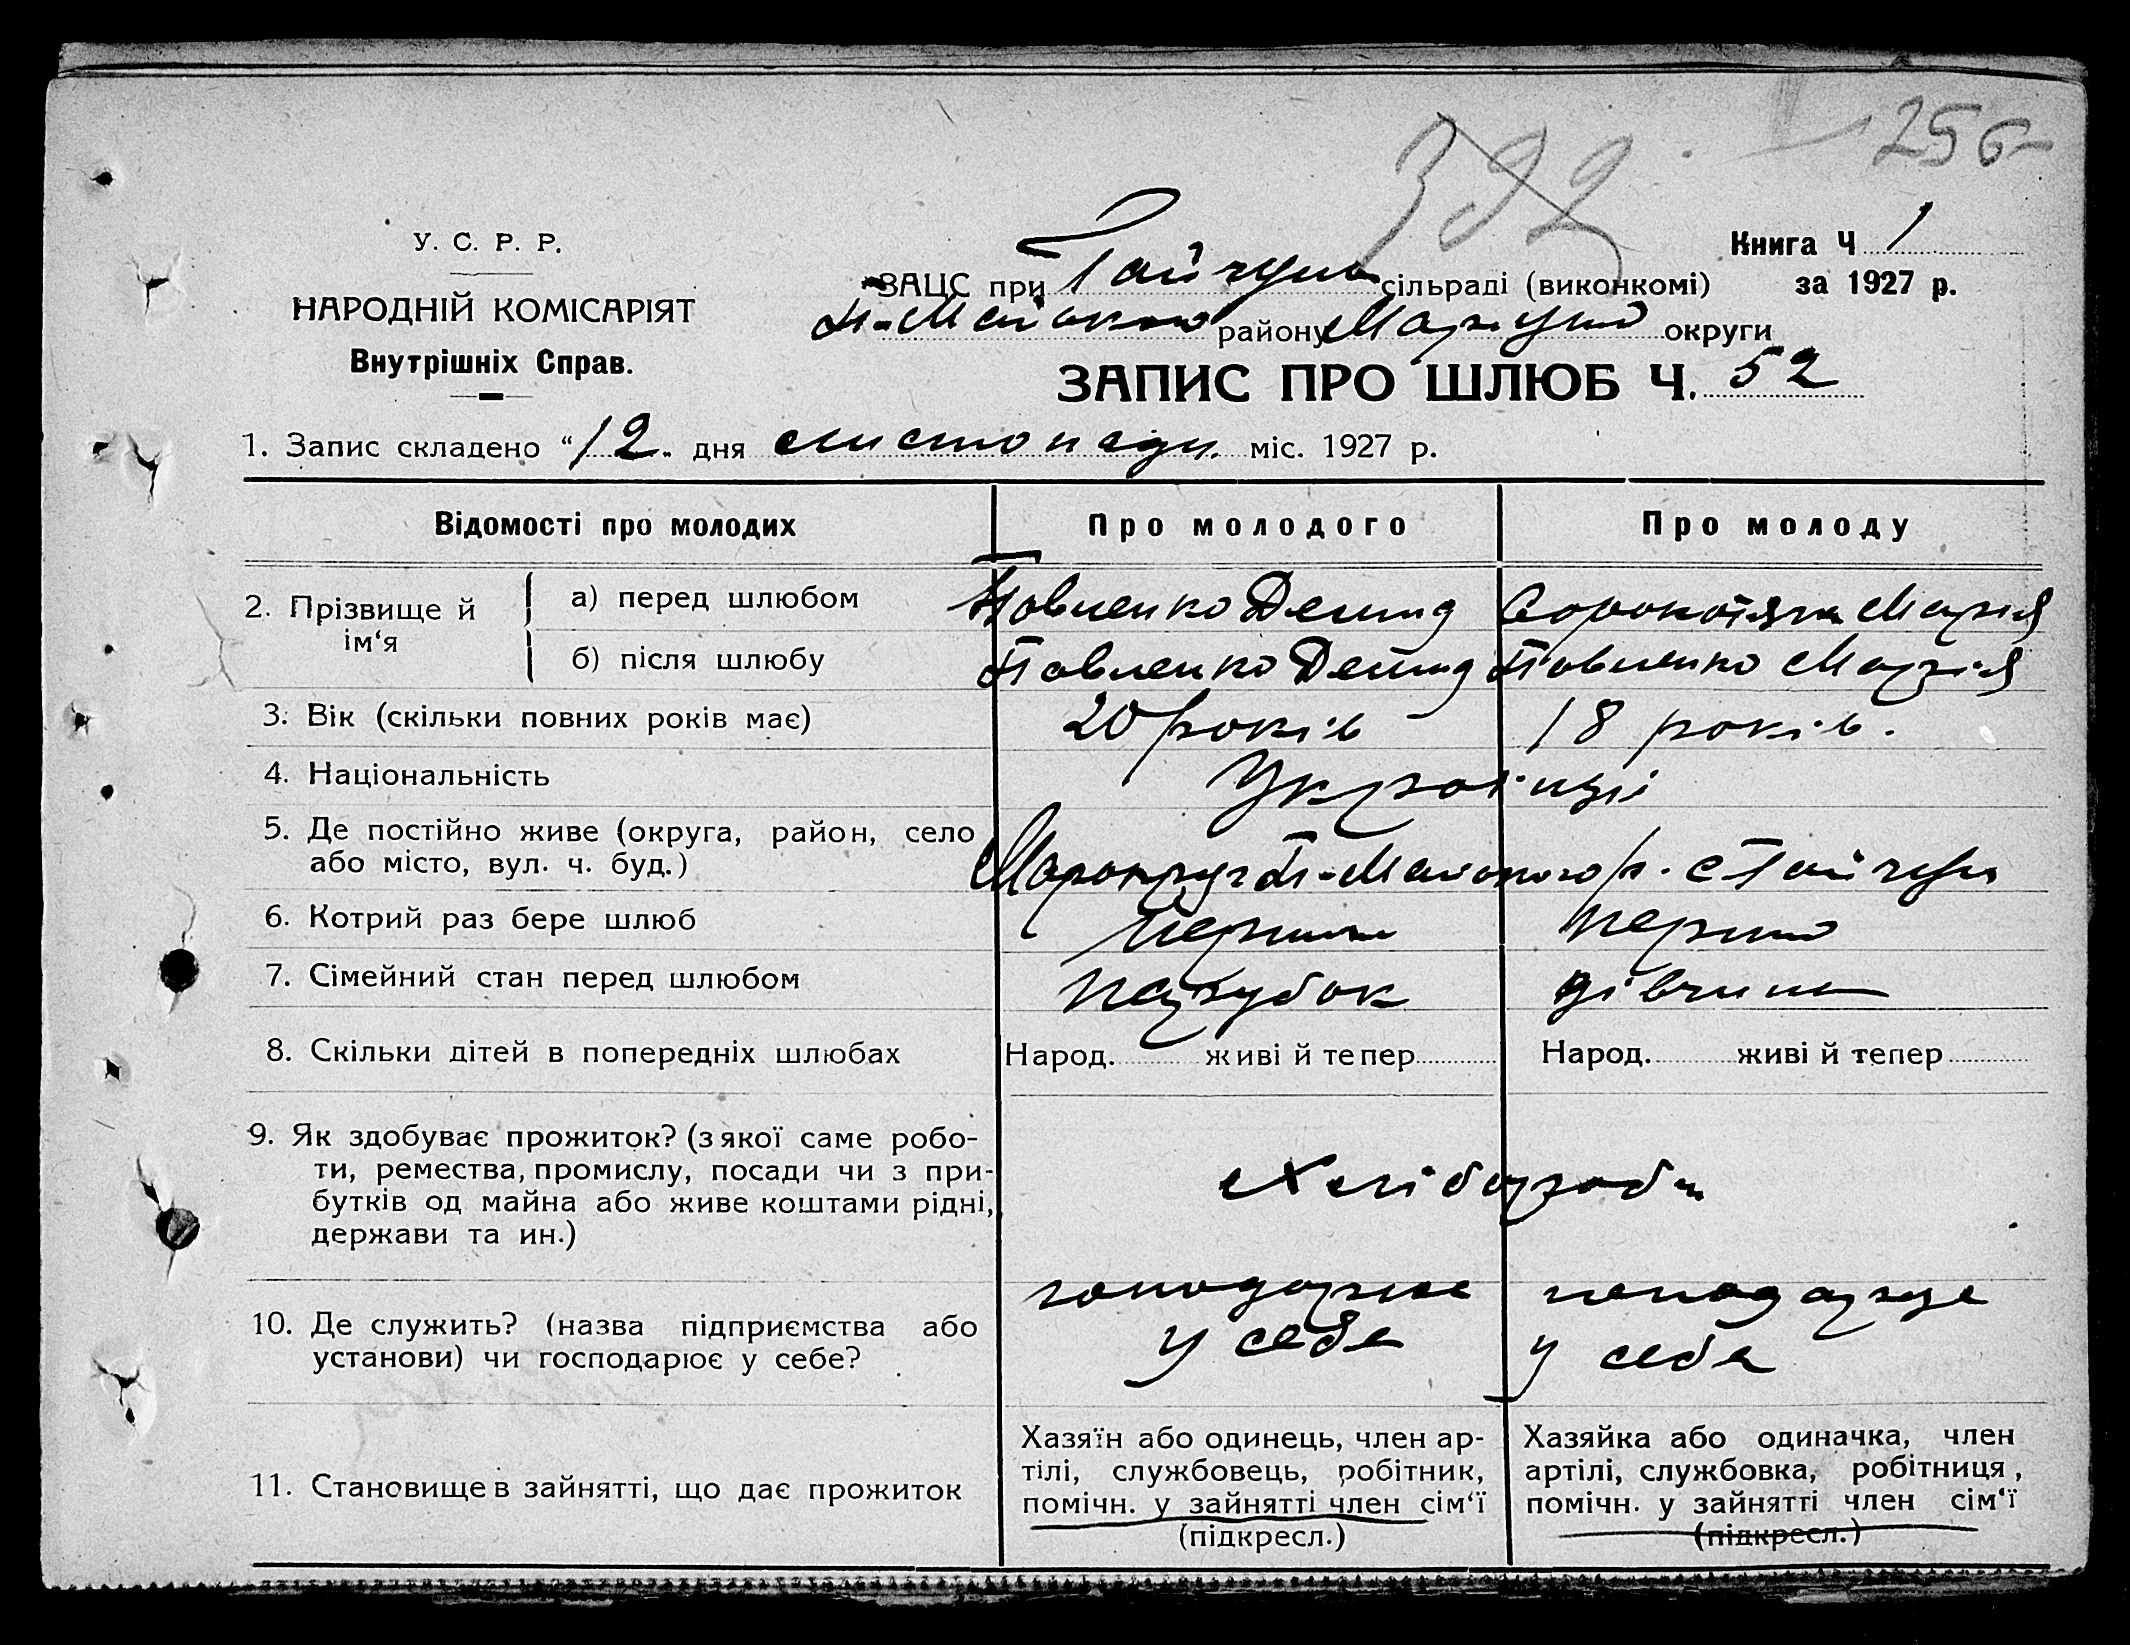 392 256
У. С. Р. Р.
НАРОДНІЙ КОМІСАРІЯТ
Внутрішніх Справ.
Книга Ч 1
за 1927 р.
ЗАЦС при Гайчул сільраді (виконкомі)
району округи
ЗАПИС ПРО ШЛЮБ Ч. 52
1. Запис складено “12„ дня листопада міс. 1927 р.
Відомості про молодих Про молодого Про молоду
2. Прізвище й ім‘я
а) перед шлюбом Павленко Демид Марія
б) після шлюбу Павленко Демид Павленко Марія
3. Вік (скільки повних років має) 20 років 18 років.
4. Національність Українці
5. Де постійно живе (округа, район, село
або місто, вул. ч. буд.) Маріюпр с Гайчул
6. Котрий раз бере шлюб перший перший
7. Сімейний стан перед шлюбом парубок дівчина
8. Скільки дітей в попередніх шлюбах Народ. живі й тепер Народ. живі й тепер
9. Як здобуває прожиток? (з якої саме робо-
ти, ремества, промислу, посади чи з при-
бутків од майна або живе коштами рідні,
держави та ин.)
Хлібороби
10. Де служить? (назва підприємства або
установи) чи господарює у себе?
господарює
у себе
господарює
у себе
11. Становище в зайнятті, що дає прожиток
Хазяїн або одинець, член ар-
тілі, службовець, робітник,
помічн. у зайнятті член сім‘ї
(підкресл.)
Хазяйка або одиначка, член
артілі, службовка, робітниця,
помічн. у зайнятті член сім‘ї
(підкресл.)